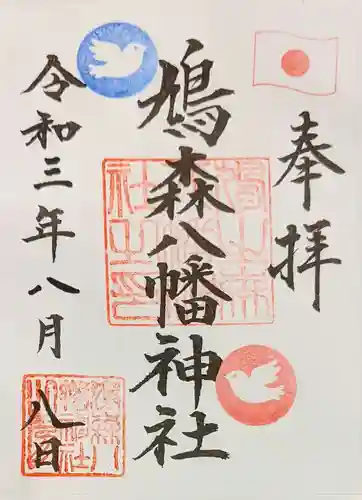 奉拝
鳩森八幡神社
令和三年八月八日